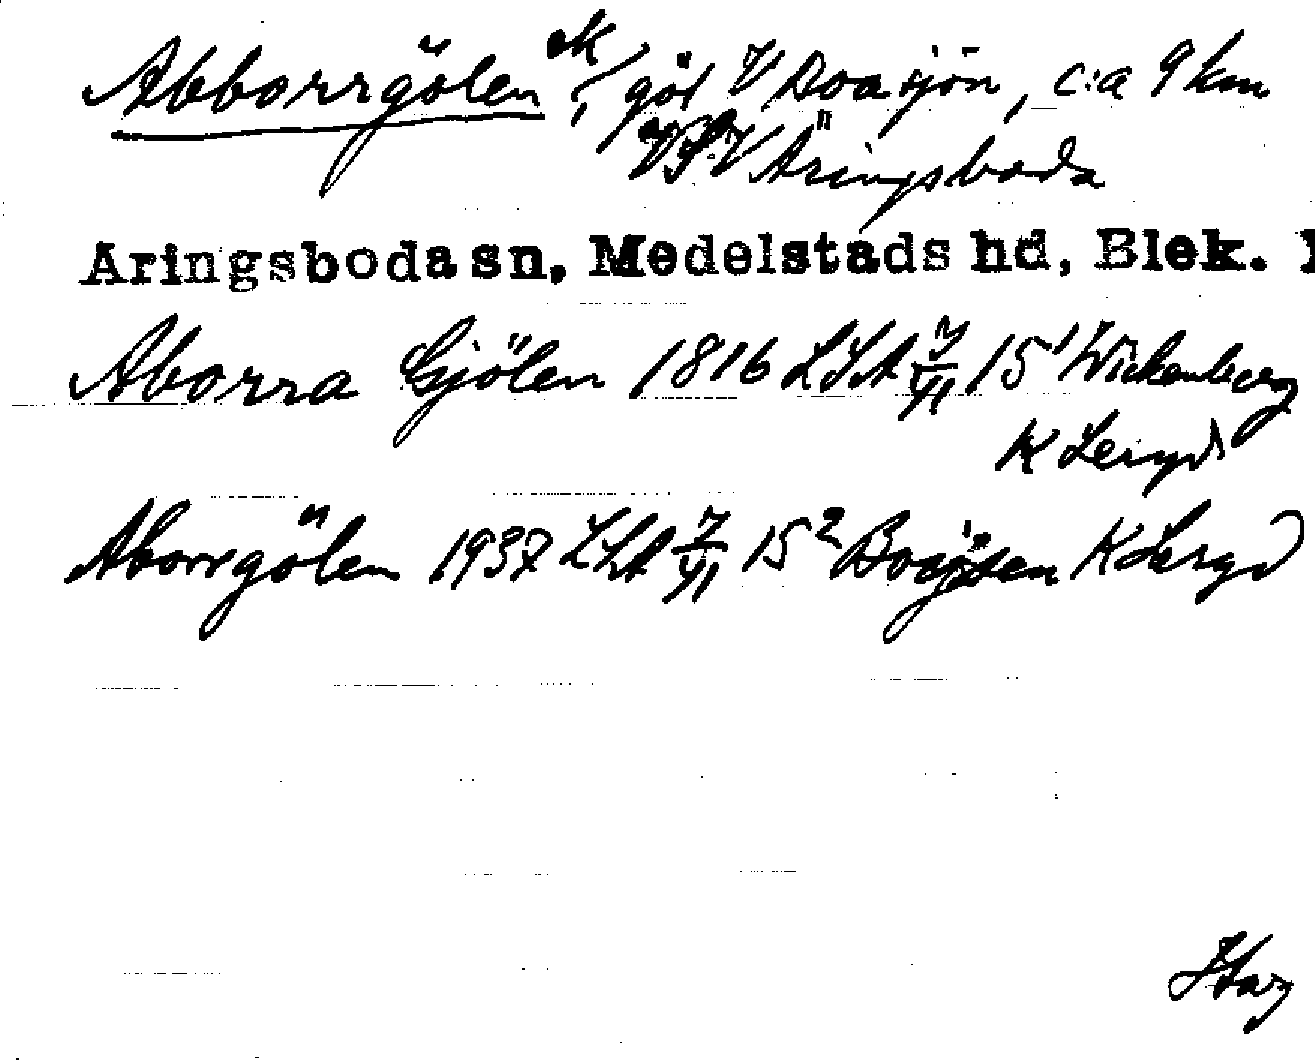 Abborrgölen ek, göl V Boasjön, c:a 9 km
VSV Äringsboda
Aringsboda sn, Medelstads hd, Blek. l
Aborra Gjölen 1816 LSA 7/VI 15¹ Wickenberg
K Leryd
Aborrgölen 1937 LSA 7/VI 15² Boasjön K Leryd